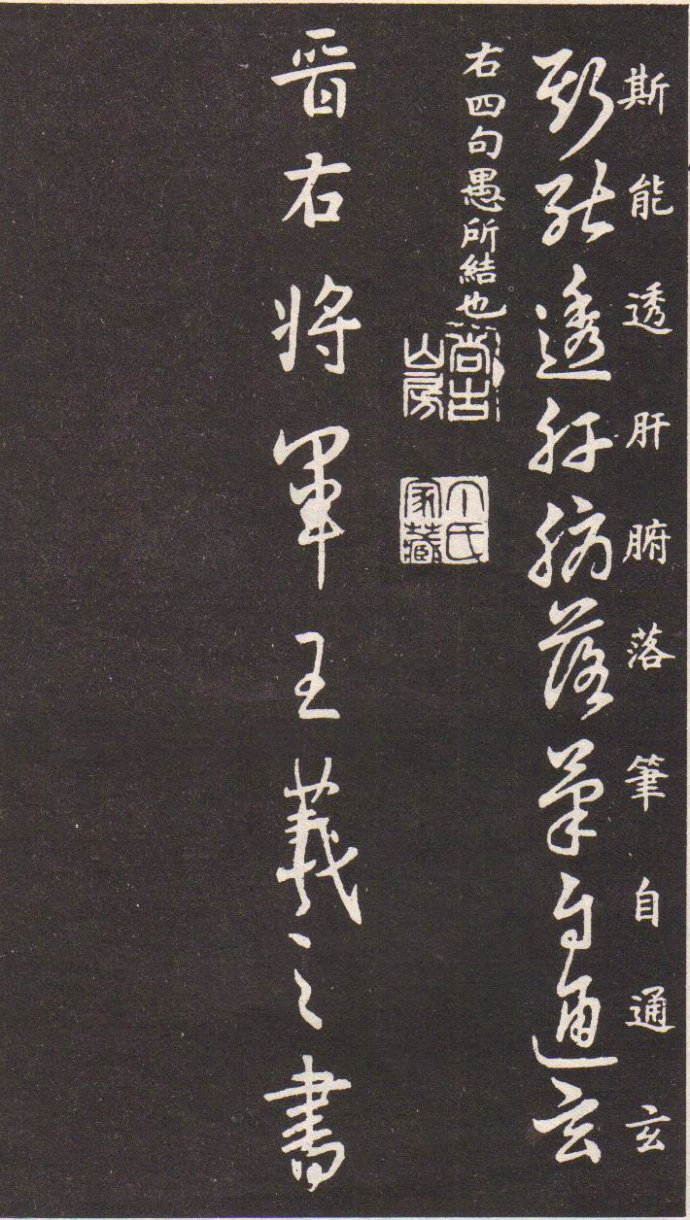 斯能透肝腑落筆自通玄
斯能透肝腑落筆自通玄
右四句愚所結也
尚古山房
丁氏家藏
晉右將軍王羲之書